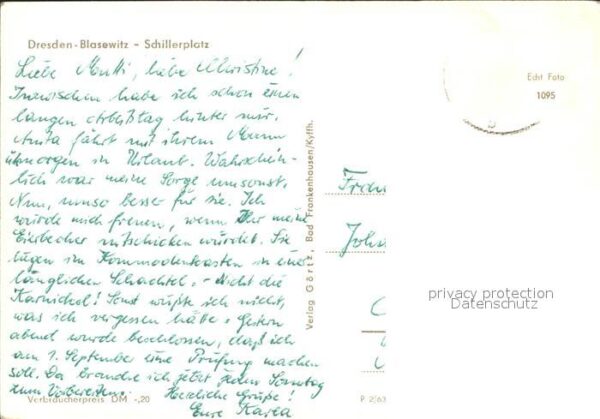 Dresden-Blasewitz - Schillerplatz
Liebe Mutti, liebe Christine!
Inzwischen habe ich schon einen
langen Arbeitstag hinter mir.
Anita fährt mit ihrem Mann
übmorgen in Urlaub. Wahrschein-
lich war meine Sorge umsonst.
Nun, umso besser für sie. Ich
würde mich freuen, wenn Ihr meine
Eierbecher mitschicken würdet. Sie
liegen im Kommodenkasten in einer
länglichen Schachtel. - Nicht die
Karnickel! Sonst wüßte ich nicht,
was ich vergessen hätte. Gestern
abend wurde beschlossen, daß ich
am 1. September eine Prüfung machen
soll. Da brauche ich jetzt jeden Sonntag
zum Vorbereiten. Herzliche Grüße!
Eure Karla
Verbraucherpreis DM -,20
Verlag Görtz, Bad Frankenhausen/Kyffh.
Echt Foto
1095
privacy protection
Datenschutz
P 2/63